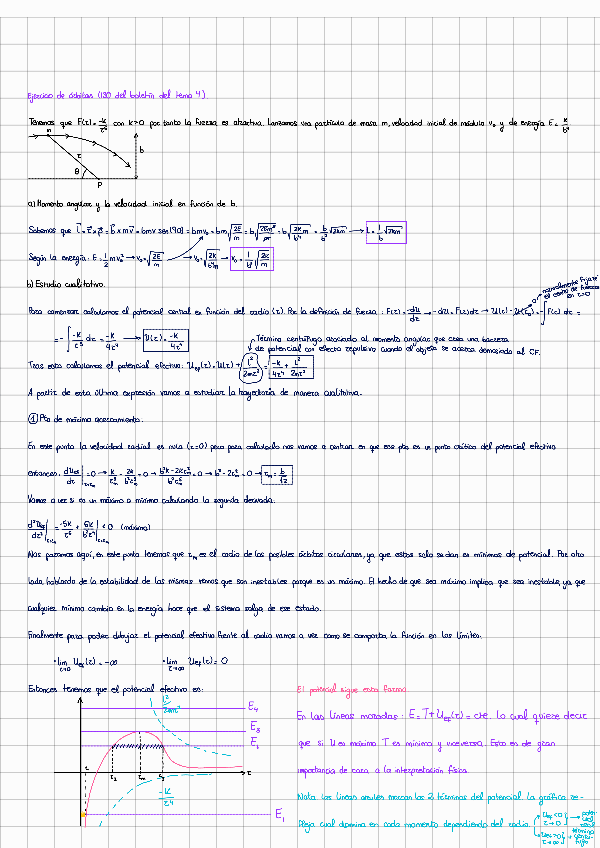 Ejercicio de órbitas (130 del boletín del tema 4)
Tenemos que F(r)= -k/r⁵ con k>0 por tanto la fuerza es atractiva. Lanzamos una partícula de masa m, velocidad inicial de módulo v₀ y de energía E= k/b⁴
m
r
b
θ
P
a) Momento angular y la velocidad inicial en función de b.
Sabemos que L = r × p = b × mv = bmv sen(90) = bmv₀ = bm√(2E/m) = b√(2Em²/m) = b√(2km/b⁴) = b/b² √2km → L = 1/b √2km
Según la energía: E = 1/2 mv₀² → v₀ = √(2E/m) → v₀ = √(2k/b⁴m) → v₀ = 1/b² √(2k/m)
b) Estudio cualitativo.
Para comenzar calculamos el potencial central en función del radio (r). Por la definición de fuerza: F(r) = -dU/dr → -dU = F(r)dr → U(r) - U(r₀) = -∫F(r) dr =
= -∫ -k/r⁵ dr = -k/4r⁴ → U(r) = -k/4r⁴
Término centrífugo asociado al momento angular que crea una barrera
de potencial con efecto repulsivo cuando el objeto se acerca demasiado al CF.
Tras esto calculamos el potencial efectivo: U_ef(r) = U(r) + L²/2mr² = -k/4r⁴ + L²/2mr²
A partir de esta última expresión vamos a estudiar la trayectoria de manera cualitativa.
① Pto de máximo acercamiento.
En este punto la velocidad radial es nula (ṙ=0) pero para calcularlo nos vamos a centrar en que ese pto es un punto crítico del potencial efectivo
entonces: dU_ef/dr |r=r_m = 0 → k/r_m⁵ - 2k/b²r_m³ = 0 → b²k-2kr_m²/b²r_m⁵ = 0 → b²-2r_m² = 0 → r_m = b/√2
Vamos a ver si es un máximo o mínimo calculando la segunda derivada.
d²U_ef/dr² |r=r_m = -5k/r⁶ + 6k/b²r⁴ |r=r_m < 0 (máximo)
Nos paramos aquí, en este punto tenemos que r_m es el radio de las posibles órbitas circulares, ya que estas solo se dan en mínimos de potencial. Por otro
lado, hablando de la estabilidad de las mismas vemos que son inestables porque es un máximo. El hecho de que sea máximo implica que sea inestable, ya que
cualquier mínimo cambio en la energía hace que el sistema salga de ese estado.
Finalmente para poder dibujar el potencial efectivo frente al radio vamos a ver como se comporta la función en los límites.
· lim r→0 U_ef(r) = -∞ · lim r→∞ U_ef(r) = 0
Entonces tenemos que el potencial efectivo es:
El potencial sigue esta forma
En las líneas moradas: E = T + U_ef(r) = cte, lo cual quiere decir
que si U es máximo T es mínimo y viceversa. Esto es de gran
importancia de cara a la interpretación física.
Nota: Las líneas azules marcan los 2 términos del potencial. La gráfica re-
fleja cual domina en cada momento dependiendo del radio.
L²/2mr²
E₄
E₃
r_m
r
-k/r⁴
E₁